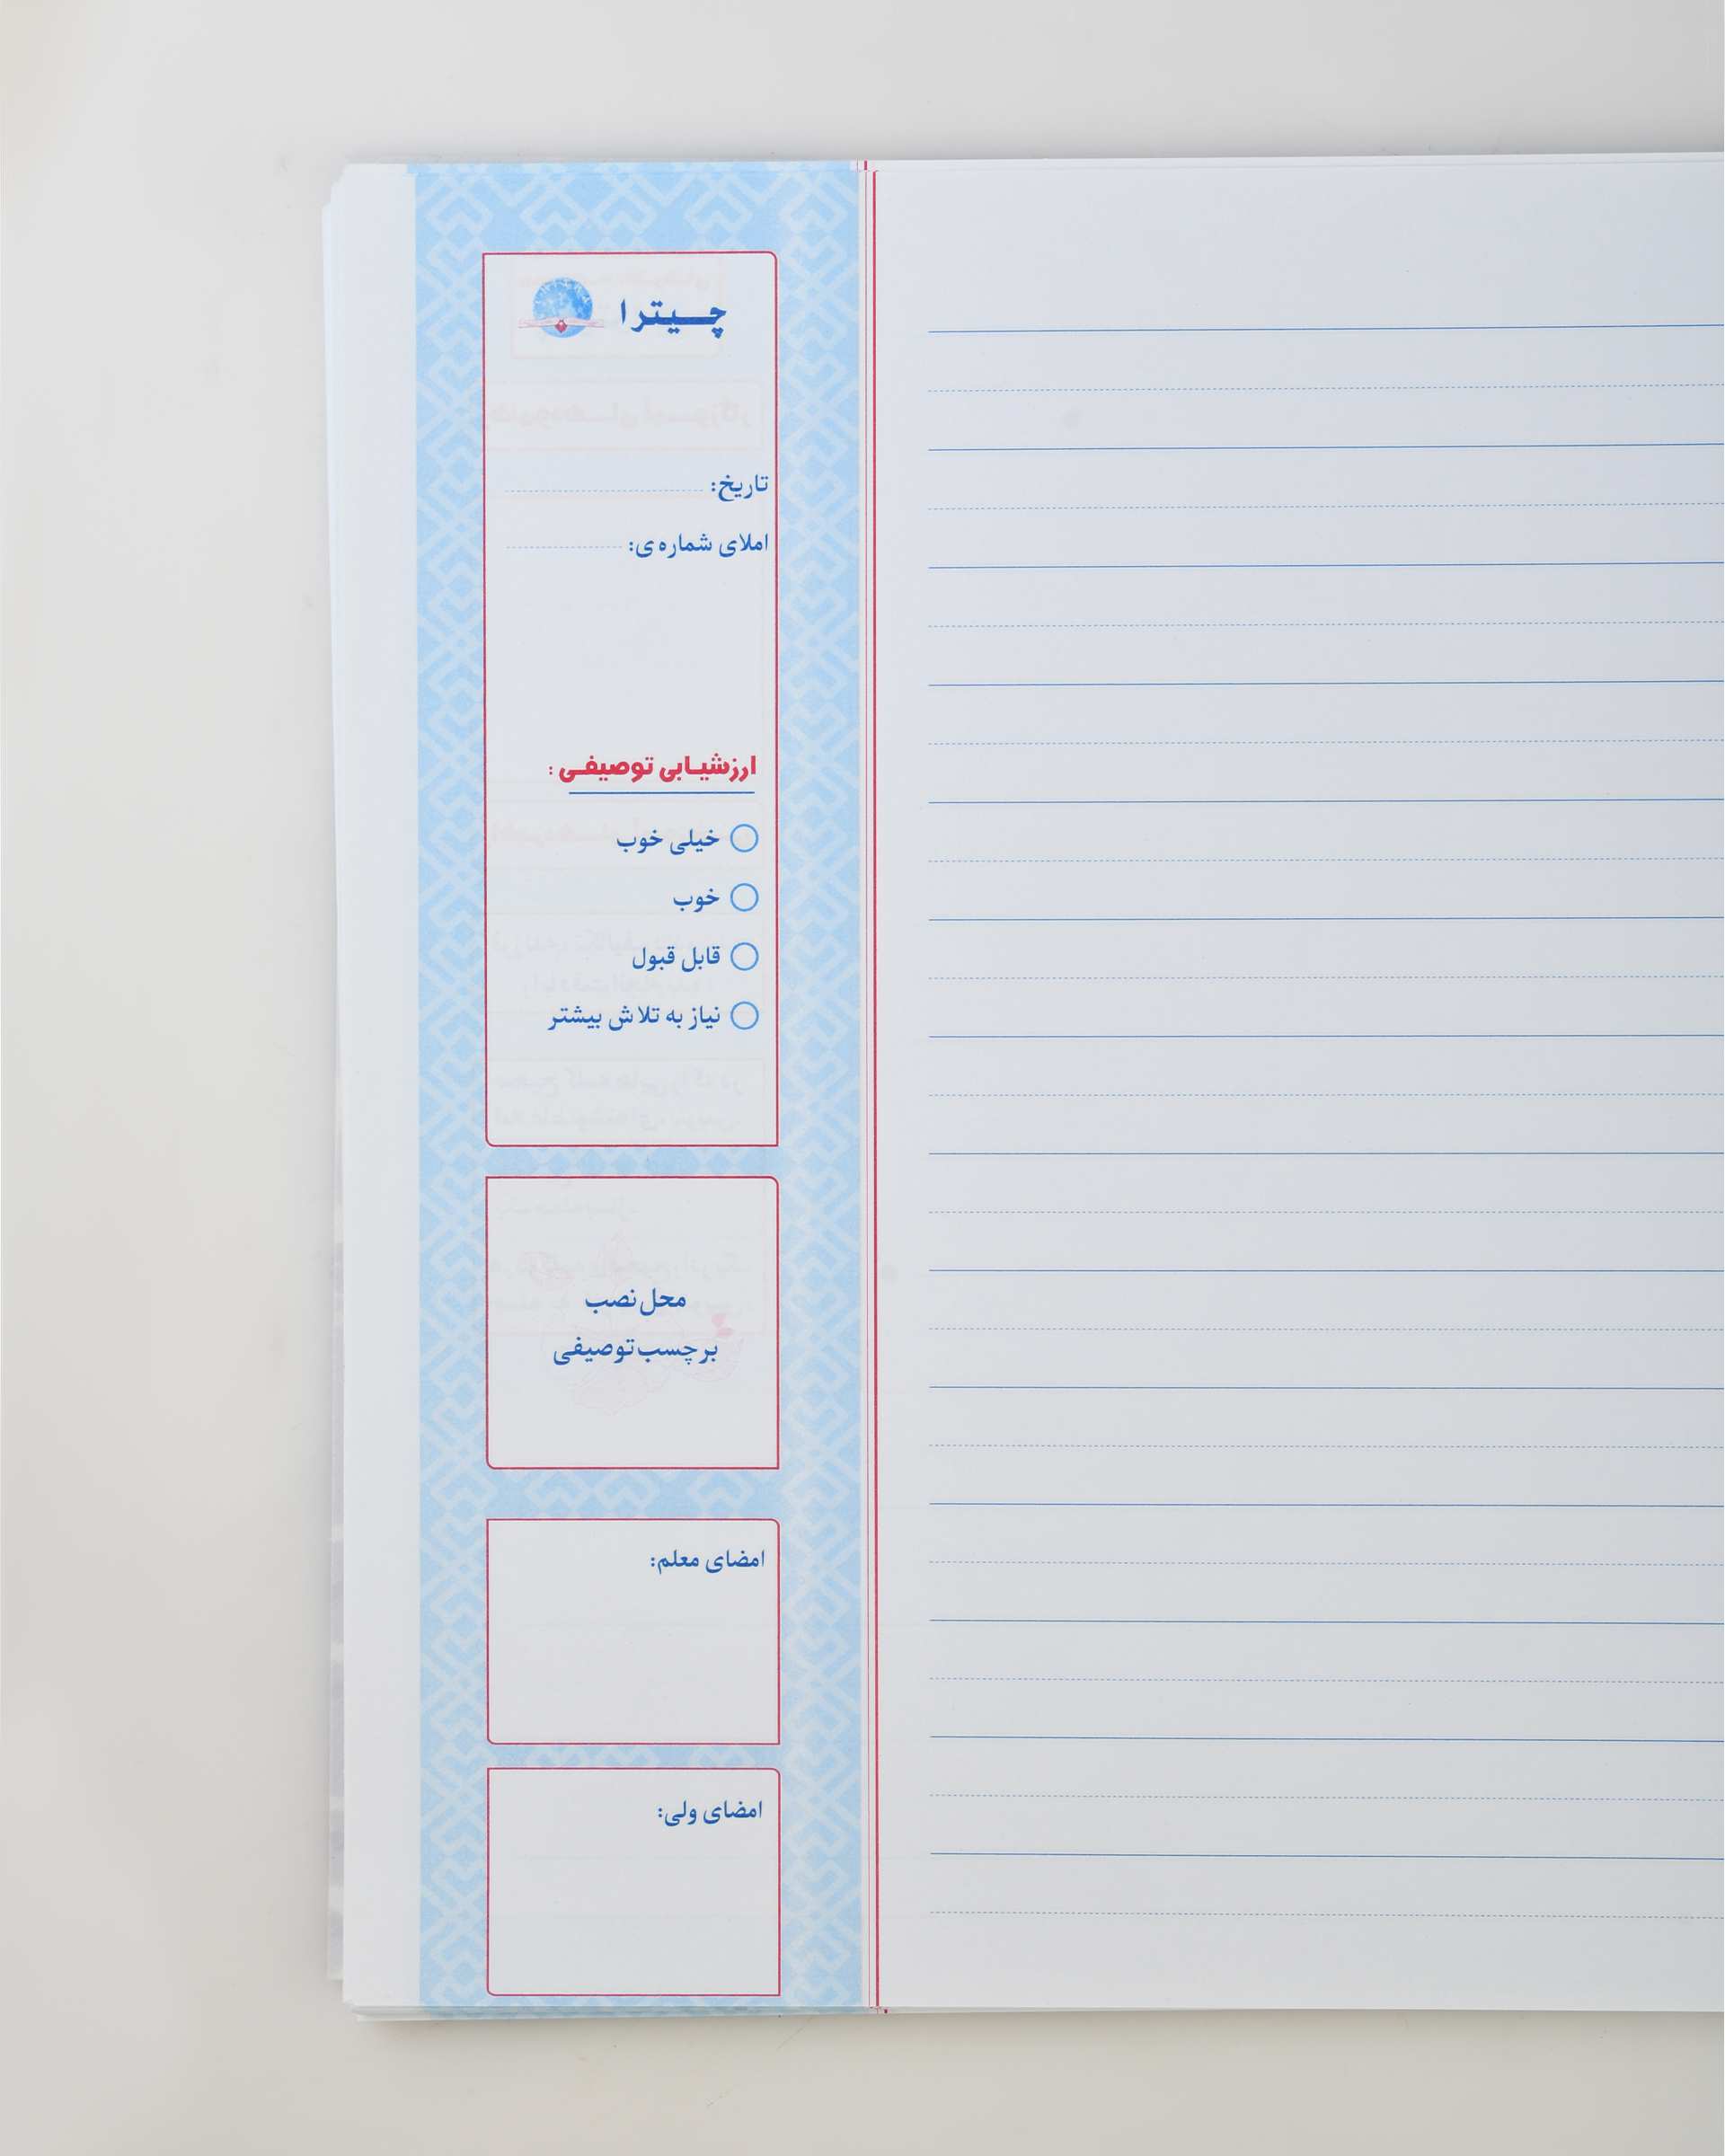 چیترا
تاریخ:
املای شماره ی:
ارزشیابی توصیفی :
خیلی خوب
خوب
قابل قبول
نیاز به تلاش بیشتر
محل نصب
برچسب توصیفی
امضای معلم:
امضای ولی: